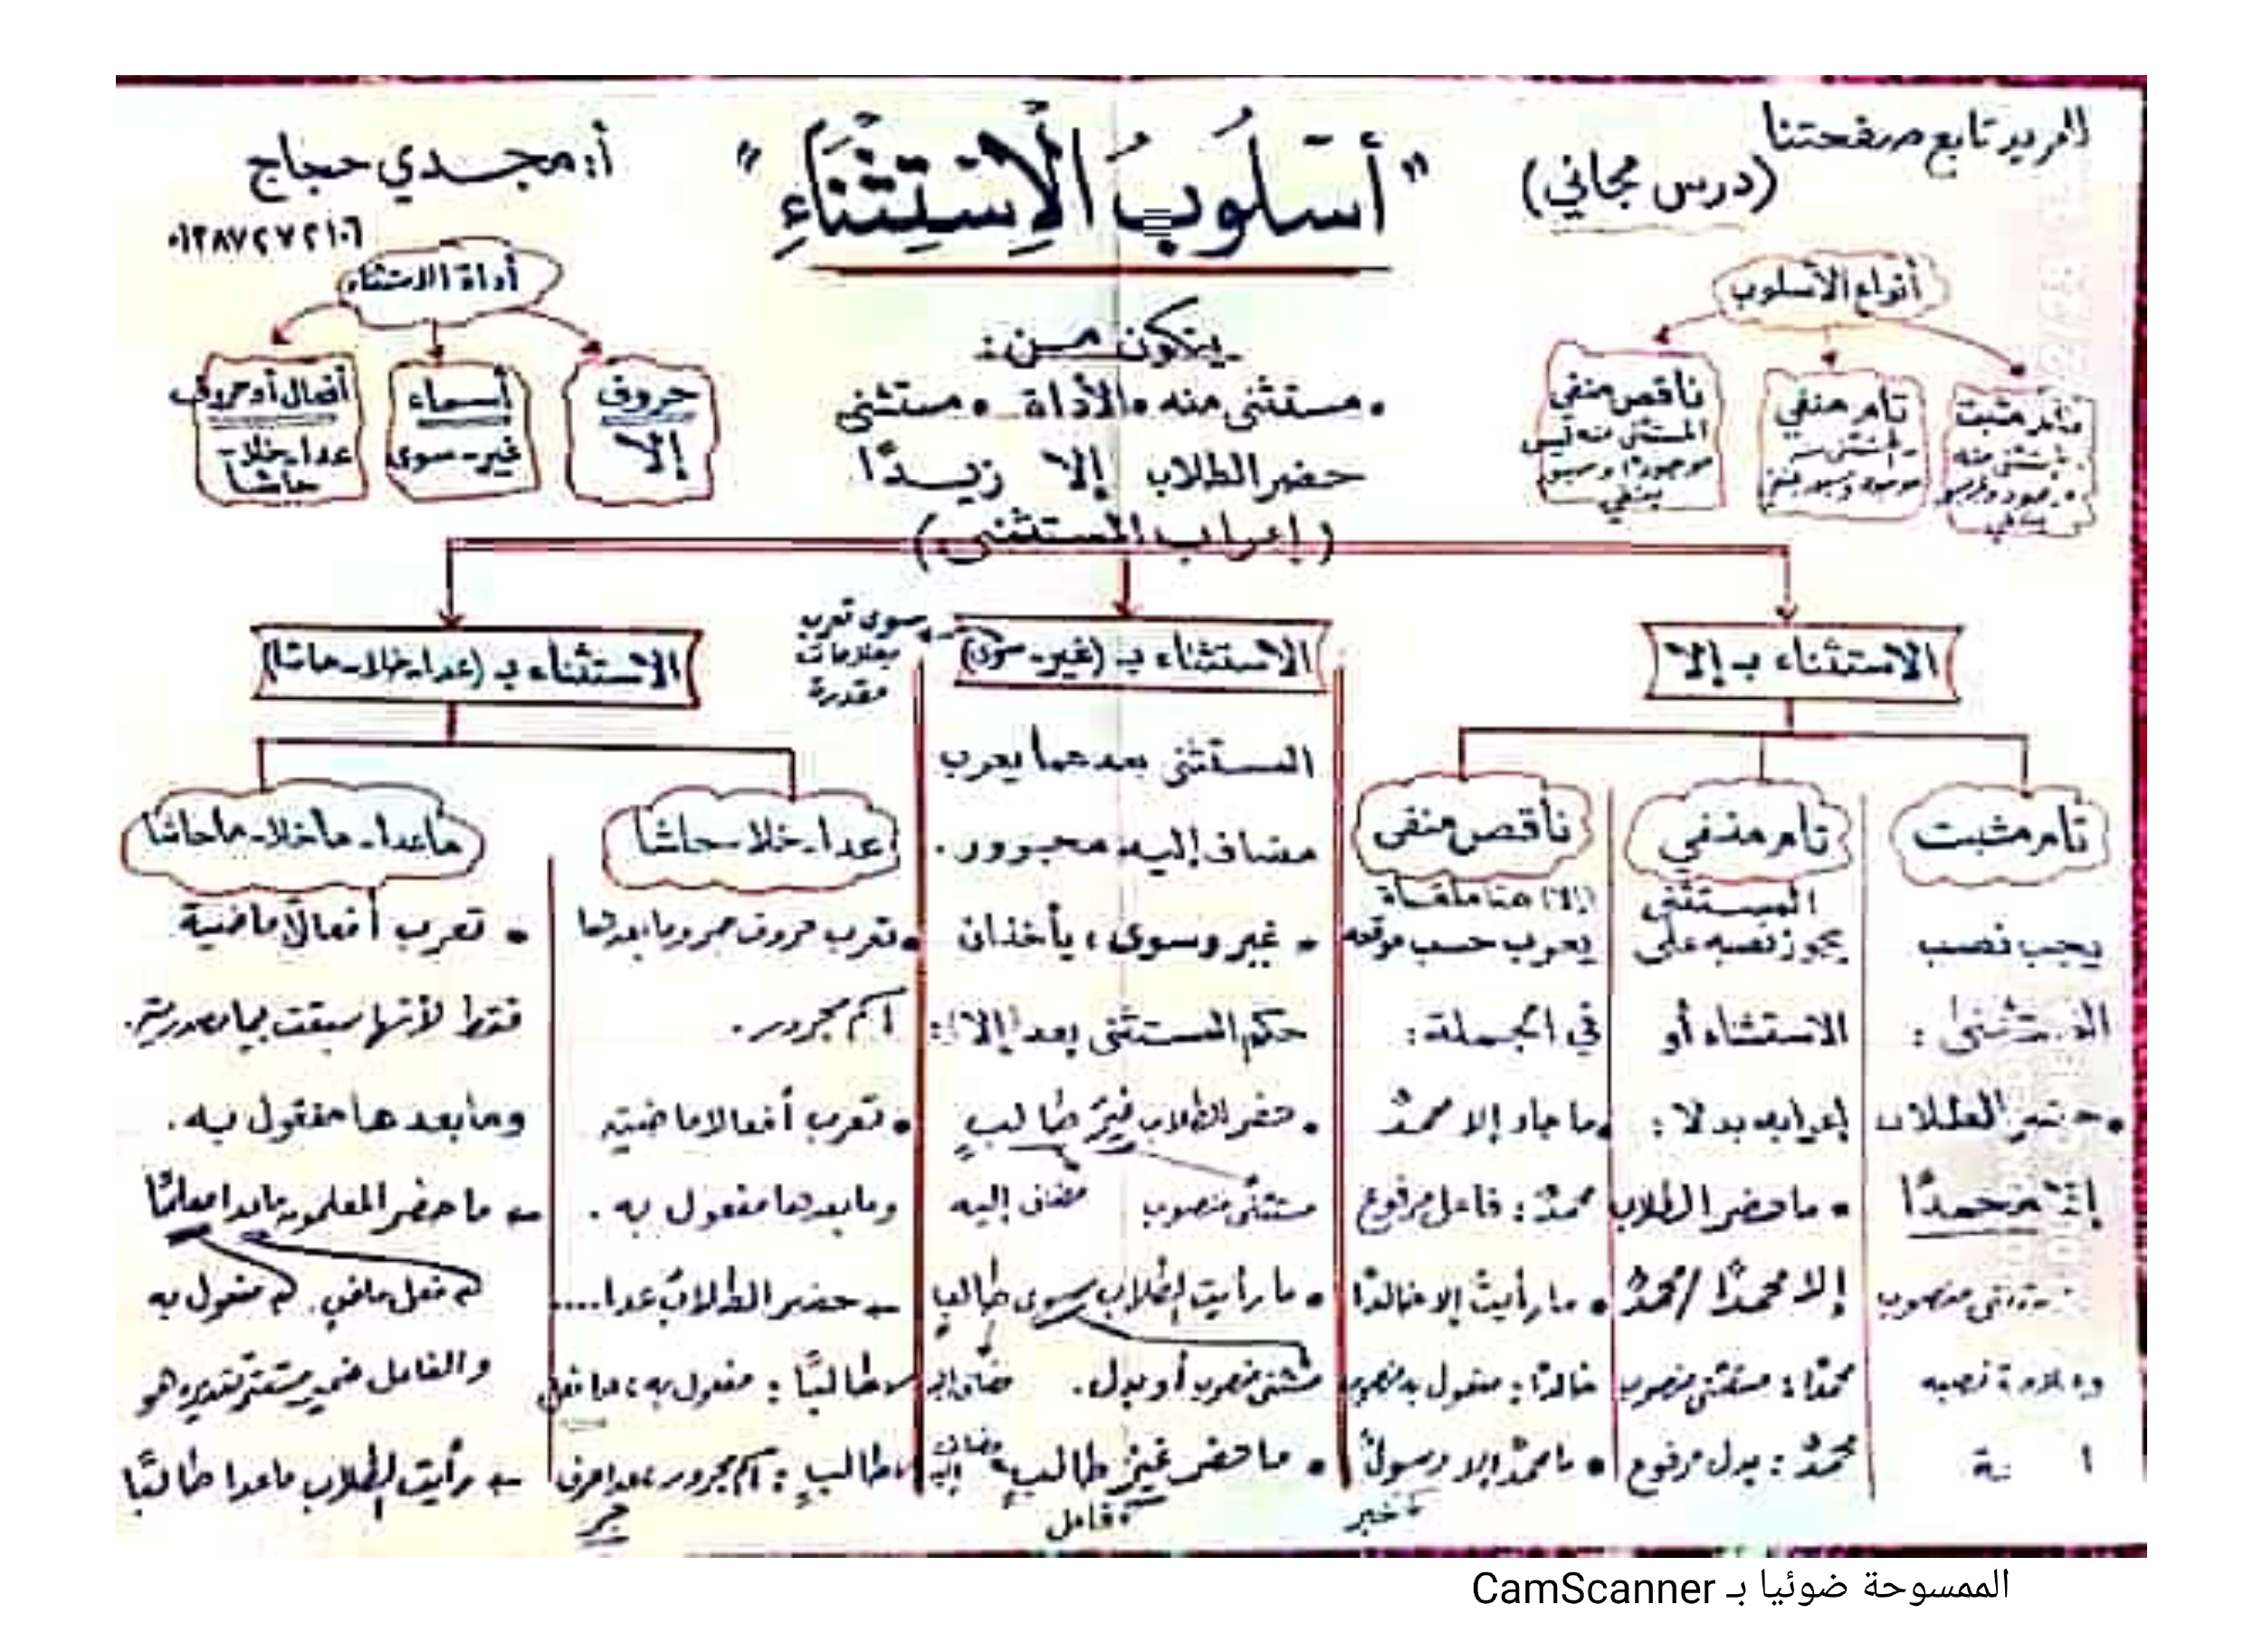 للمزيد تابع صفحتنا
(درس مجاني)
"أُسْلُوبُ الْاِسْتِثْنَاءِ"
أ: مجدي حجاج
أنواع الأسلوب
تام مثبت
المستثنى منه
تام منفي
ناقص منفي
المستثنى منه ليس
موجودًا وسبق
بنفي
يتكون من:
• مستثنى منه • الأداة • مستثنى
حضر الطلاب إلا زيدًا
أداة الاستثناء
حروف
إلا
أسماء
غير - سوى
أفعال أو حروف
عدا - خلا -
حاشا
(إعراب المستثنى)
الاستثناء بـ إلا
تام مثبت
يجب نصب
المستثنى:
• حضر الطلاب
إلا محمدًا
مستثنى منصوب
وعلامة نصبه
تام منفي
المستثنى
يجوز نصبه على
الاستثناء أو
إعرابه بدلا:
• ما حضر الطلاب
إلا محمدًا / محمدٌ
محمدًا: مستثنى منصوب
محمدٌ: بدل مرفوع
ناقص منفي
إلا هنا ملغاة
يعرب حسب موقعه
في الجملة:
• ما جاء إلا محمدٌ
محمدٌ: فاعل مرفوع
• ما رأيتُ إلا خالدًا
خالدًا: مفعول به منصوب
• ما محمدٌ إلا رسولٌ
خبر
الاستثناء بـ (غير - سوى)
سوى تعرب
بعلامات
مقدرة
المستثنى بعدهما يعرب
مضاف إليه مجرور.
• غير وسوى، يأخذان
حكم المستثنى بعد (إلا):
• حضر الطلاب غيرَ طالبٍ
مستثنى منصوب مضاف إليه
• ما رأيت الطلاب سوى طالبٍ
مستثنى منصوب أو بدل. مضاف إليه
• ما حضر غيرُ طالبٍ مضاف إليه
فاعل
الاستثناء بـ (عدا - خلا - حاشا)
عدا - خلا - حاشا
• تعرب حروف جر وما بعدها
اسم مجرور.
• تعرب أفعالا ماضية
وما بعدها مفعول به.
- حضر الطلابُ عدا....
طالبًا: مفعول به، عدا فعل
طالبٍ: اسم مجرور، عدا حرف
جر
ما عدا - ما خلا - ما حاشا
• تعرب أفعالًا ماضية
فقط لأنها سبقت بما مصدرية.
وما بعدها مفعول به.
- ما حضر المعلمون ماعدا معلمًا
فعل ماضي. مفعول به
والفاعل ضمير مستتر تقديره هو
- رأيت الطلاب ماعدا طالبًا
الممسوحة ضوئيا بـ CamScanner